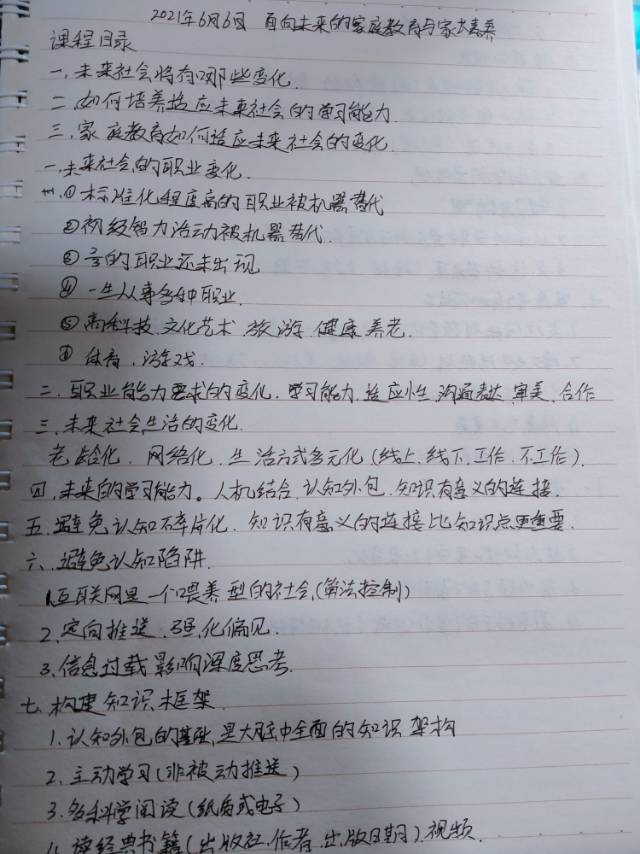 2021年6月6日 面向未来的家庭教育与家长素养
课程目录
一、未来社会将有哪些变化.
二、如何培养适应未来社会的学习能力
三、家庭教育如何适应未来社会的变化
一、未来社会的职业变化.
①标准化程度高的职业被机器替代
②初级智力活动被机器替代.
③的职业还未出现
④一生从事多种职业.
⑤高科技 文化艺术 旅游 健康 养老.
体育、游戏.
二、职业能力要求的变化. 学习能力. 适应性. 沟通表达 审美. 合作
三、未来社会生活的变化.
老龄化. 网络化. 生活方式多元化(线上.线下.工作.不工作).
四、未来的学习能力。人机结合. 认知外包. 知识有意义的连接.
五、避免认知碎片化. 知识有意义的连接比知识点更重要.
六、避免认知陷阱.
1.互联网是一个喂养型的社会.(算法控制)
2.定向推送.强化偏见.
3.信息过载影响深度思考.
七、构建知识框架.
1.认知外包的基础,是大脑中全面的知识架构
2.主动学习(非被动推送)
3.多科学阅读(纸质或电子)
4.读经典书籍(出版社.作者.出版日期).视频.